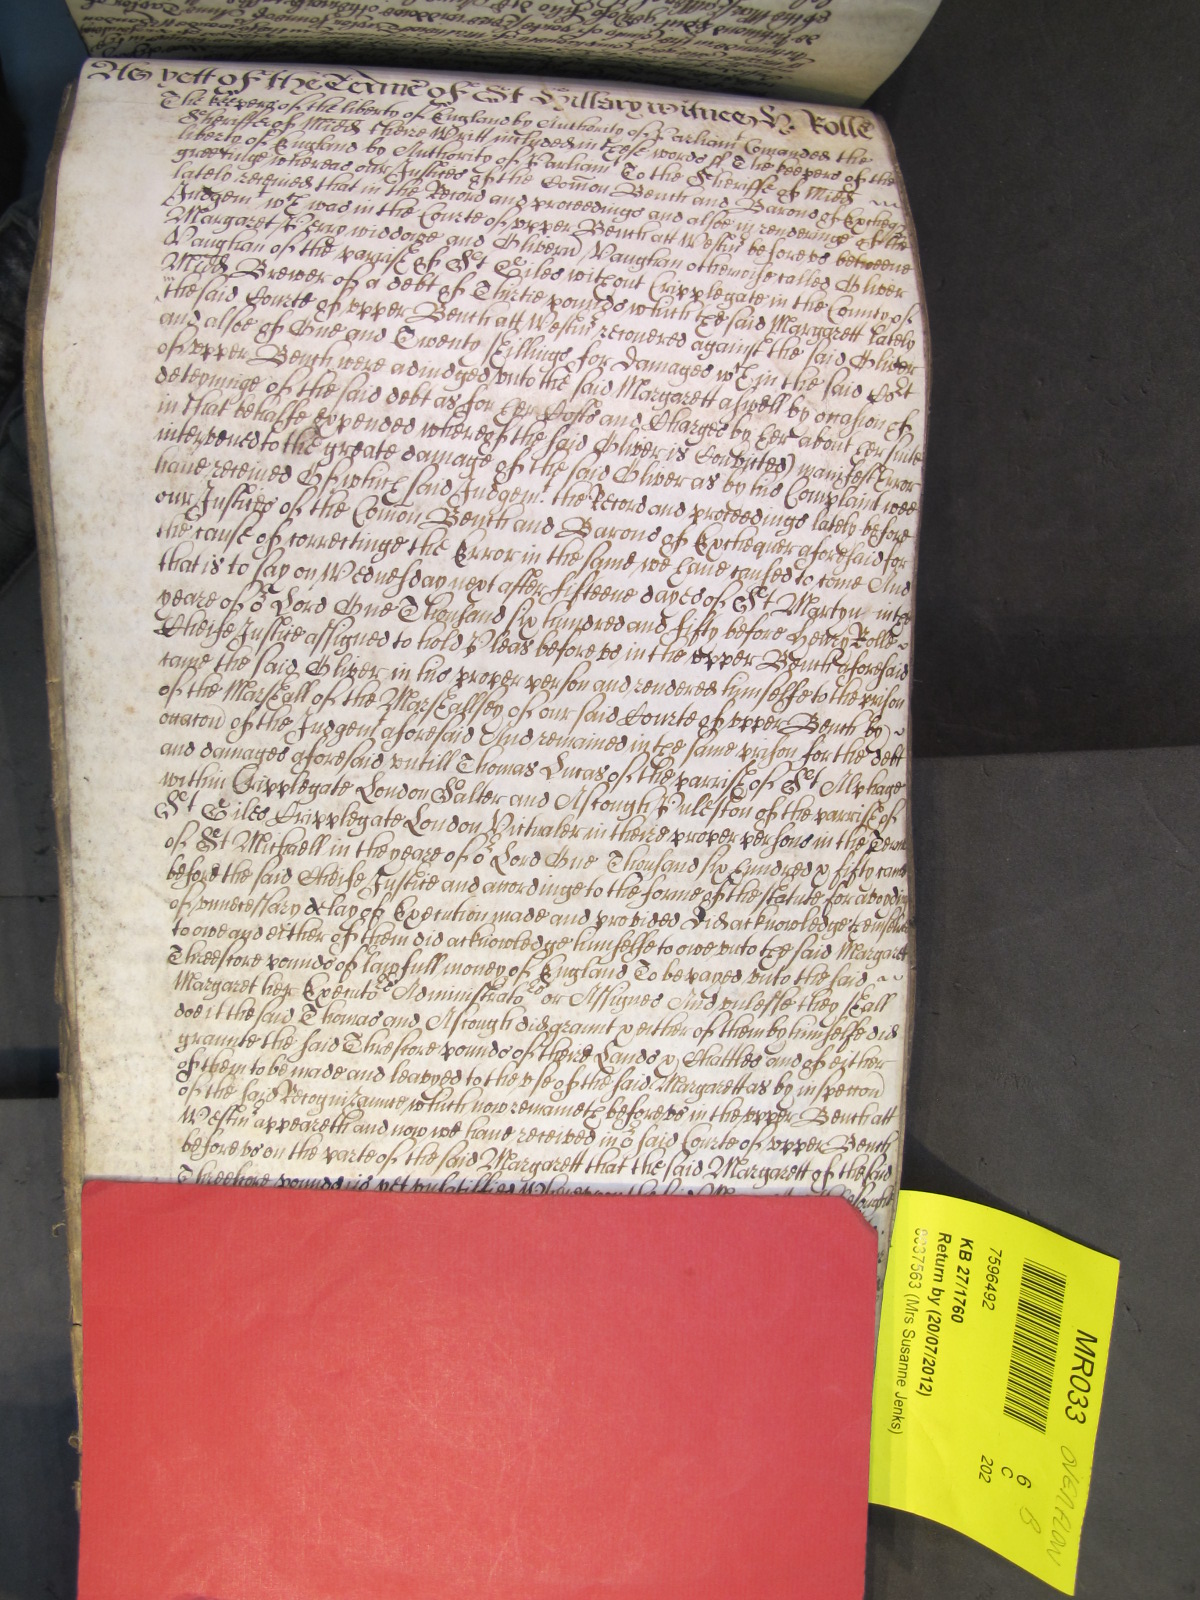 As yett of the Terme of St Hillary witnes H. Rolle
The keepers of the liberty of England by Authority of Parliamt Comanded the
Sheriffe of Midds theire Writt inclosed in these words ss The keepers of the
liberty of England by Authority of Parliamt To the Sheriffe of Midds
greetinge whereas our Justices of the Comon Bench and Barons of Excheqr
lately receiued that in the Record and proceedings and alsoe in renderinge of the
Judgemt wch was in the Courte of vpper Bench att Westmr before vs betweene
Margarett Perry widdowe and Oliver Vaughan otherwise called Oliver
Vaughan of the parrish of St Giles without Cripplegate in the County of
Midds Brewer of a debt of Thirtie pounds which the said Margarett lately
the said Courte of vpper Bench att Westmr recouered against the said Oliver
and alsoe of One and Twenty shillings for damages wch in the said Cort
of vpper Bench were adiudged vnto the said Margarett aswell by occasion of
deteyninge of the said debt as for her Costs and Charges by her about her suite
in that behalfe expended whereof the said Oliver is Convicted manifest Error
intervened to the greate damage of the said Oliver as by his Complaint wee
haue receiued Of which said Judgemt the Record and proceedings lately before
our Justices of the Comon Bench and Barons of Exchequer aforesaid for
the cause of correctinge the Error in the same we haue caused to come And
that is to say on Wednesday next after fifteene dayes of St Martyn in the
yeare of or Lord One Thousand six hundred and fifty before Henry Rolle
Cheife Justice assigned to hold Pleas before vs in the vpper Bench aforesaid
came the said Oliver in his proper person and rendered himselfe to the prison
of the Marshall of the Marshallsey of our said Courte of vpper Bench by
occasion of the Judgemt aforesaid And remained in the same prison for the debt
and damages aforesaid vntill Thomas Lucas of the parrish of St Alphage
within Cripplegate London Salter and Ascough Puleston of the parrish of
St Giles Cripplegate London Victualer in theire proper persons in the Terme
of St Michaell in the yeare of or Lord One Thousand six hundred & fifty came
before the said Cheife Justice and accordinge to the forme of the statute for avoydinge
of vnnecessary delay of Execution made and provided did acknowledge themselves
to owe and either of them did acknowledge himselfe to owe vnto the said Margarett
Threescore pounds of lawfull money of England To be payed vnto the said
Margarett her Executors Administrators or Assignes And vnlesse they shall
doe it the said Thomas and Ascough did graunt & either of them by himselfe did
graunte the said Threscore pounds of theire Lands & Chattles and of either
of them to be made and leavyed to the vse of the said Margarett as by inspeccon
of the said Recognizannce which now remaineth before vs in the vpper Bench att
Westmr appeareth and now we haue received in or said Courte of vpper Bench
before vs on the parte of the said Margarett that the said Margarett of the said
Threscore pounds is yet vnsatisfied Wherevpon the said
MR033
OVERFLOW
7596492
6 B
C
202
KB 27/1760
Return by (20/07/2012)
8337563 (Mrs Susanne Jenks)